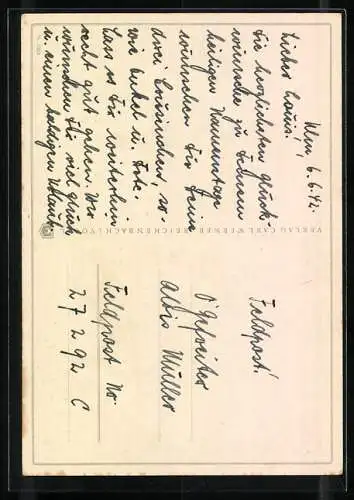 6.6.42.
Lieber Louis!
die herzlichsten Glück-
wünsche zu Deinem
Namenstage
wünschen Dir Deine
drei Cousinchen, so-
wie Onkel u. Tante.
Lass es Dir weiterhin
recht gut gehen. Wir
wünschen Dir viel Glück
u. einen baldigen Urlaub
VERLAG CARL WERNER, REICHENBACH I. V.
Feldpost!
O'Gefreiter
Alois Müller
Feldpost Nr.
27292 C